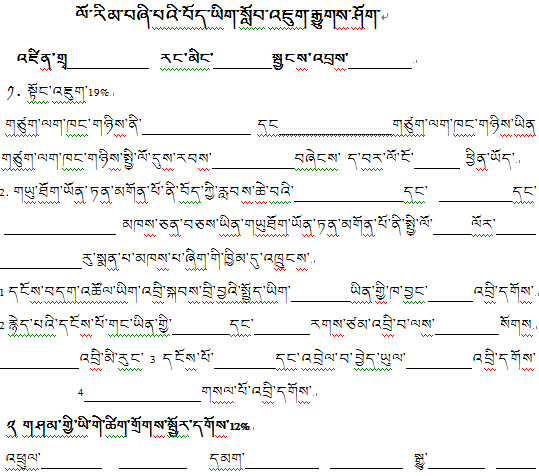 ལོ་རིམ་བཞི་པའི་བོད་ཡིག་སློབ་འཇུག་རྒྱུགས་ཤོག་
འཛིན་གྲྭ ________ རང་མིང་ ______ སྦྱངས་འབྲས་ ______
༡. སྟོང་འཇུག་19%.
གཙུག་ལག་ཁང་གཉིས་ནི་ ________ དང ________ གཙུག་ལག་ཁང་གཉིས་ཡིན
གཙུག་ལག་ཁང་གཉིས་སྤྱི་ལོ་དུས་རབས་ ________ བཞེངས་ ད་བར་ལོ་ངོ་ ______ ཕྱིན་ཡོད་.
2. གཡུ་ཐོག་ཡོན་ཏན་མགོན་པོ་ནི་བོད་ཀྱི་རླབས་ཆེ་བའི་ ________ དང་ ________ དང་
________ མཁས་ཅན་བཅས་ཡིན་གཡུཐོག་ཡོན་ཏན་མགོན་པོ་ནི་སྤྱི་ལོ་ ____ ལོར་ ____
________ རུ་སྨན་པ་མཁས་པ་ཞིག་གི་ཁྱིམ་དུ་འཁྲུངས་
1 དངོས་བདག་འཚོལ་ཡིག་འབྲི་སྐབས་བྲི་བྱའི་སྤྱོད་ཡིག་ ______ ཡིན་གྱི་ཁ་བྱང་ ____ འབྲི་དགོས་.
2 རྙེད་པའི་དངོས་པོ་གང་ཡིན་གྱི་ ______ དང་ ______ རགས་ཙམ་འབྲི་བ་ལས་ ____ སོགས.
________ འབྲི་མི་རུང་ 3 དངོས་པོ་ ______ དང་འབྲེལ་བ་བྱེད་ཡུལ་ ______ འབྲི་དགོས་
4 ________ གསལ་པོ་འབྲི་དགོས་.
༢ གཤམ་གྱི་ཡི་གེ་ཚིག་གྲོགས་སྦྱོར་དགོས་12%.
འཕྲུལ་ ______ ______ དམག་ ______ ______ སྒྱུ་ ____ ____